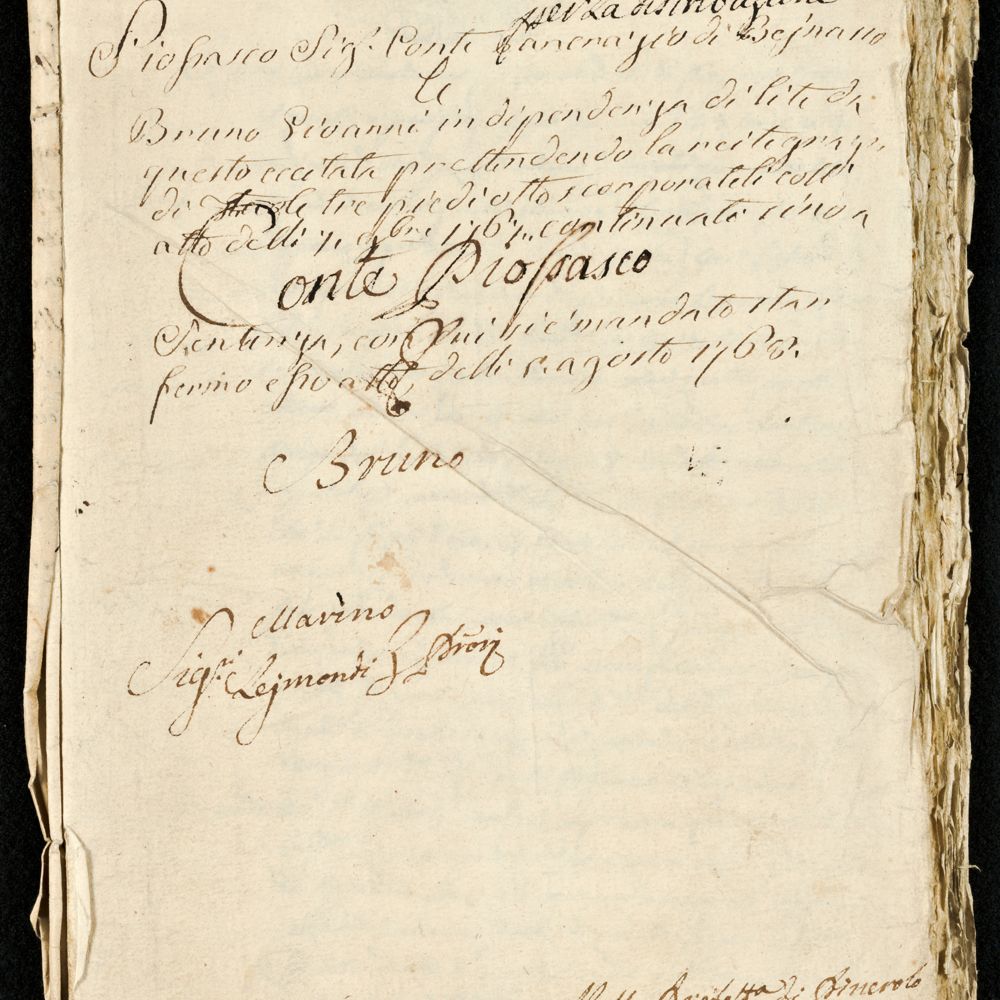 per la distribuzione
Piossasco Sig.r Conte Cancra di Bejnasco
E
Bruno Giovanni in dipendenza di lite da
questo eccitata prettendendo la reitegraz.e
di Tavole tre piedi otto scorporateli coll'
atto delli 7. 9bre 1767. continuato sino a
Conte Piossasco
Sentenza, con qui si è mandato star
fermo esso atto, delli 5. agosto 1768.
Bruno
Marino
Sig.ri
Rejmondi Prori
Prefetta di Pinerolo